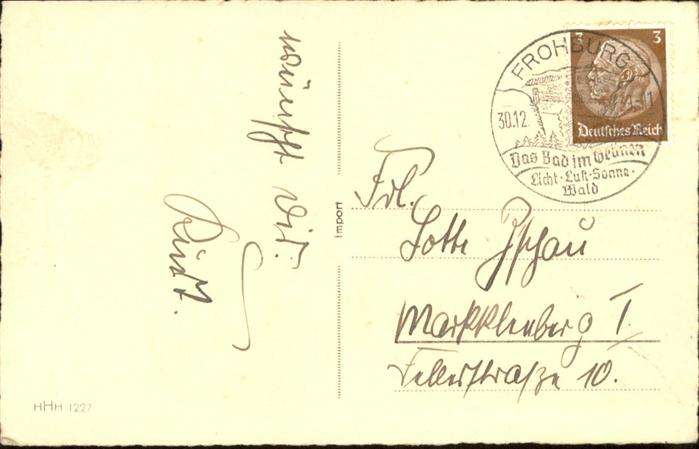 wünscht Dir:
Kurt.
Import
HHH 1227
FROHBURG
30.12
Das Bad im Grünen
Licht·Luft·Sonne·
Wald
3 3
Deutsches Reich
Frl.
Lotte Zschau
Markkleeberg I.
10.